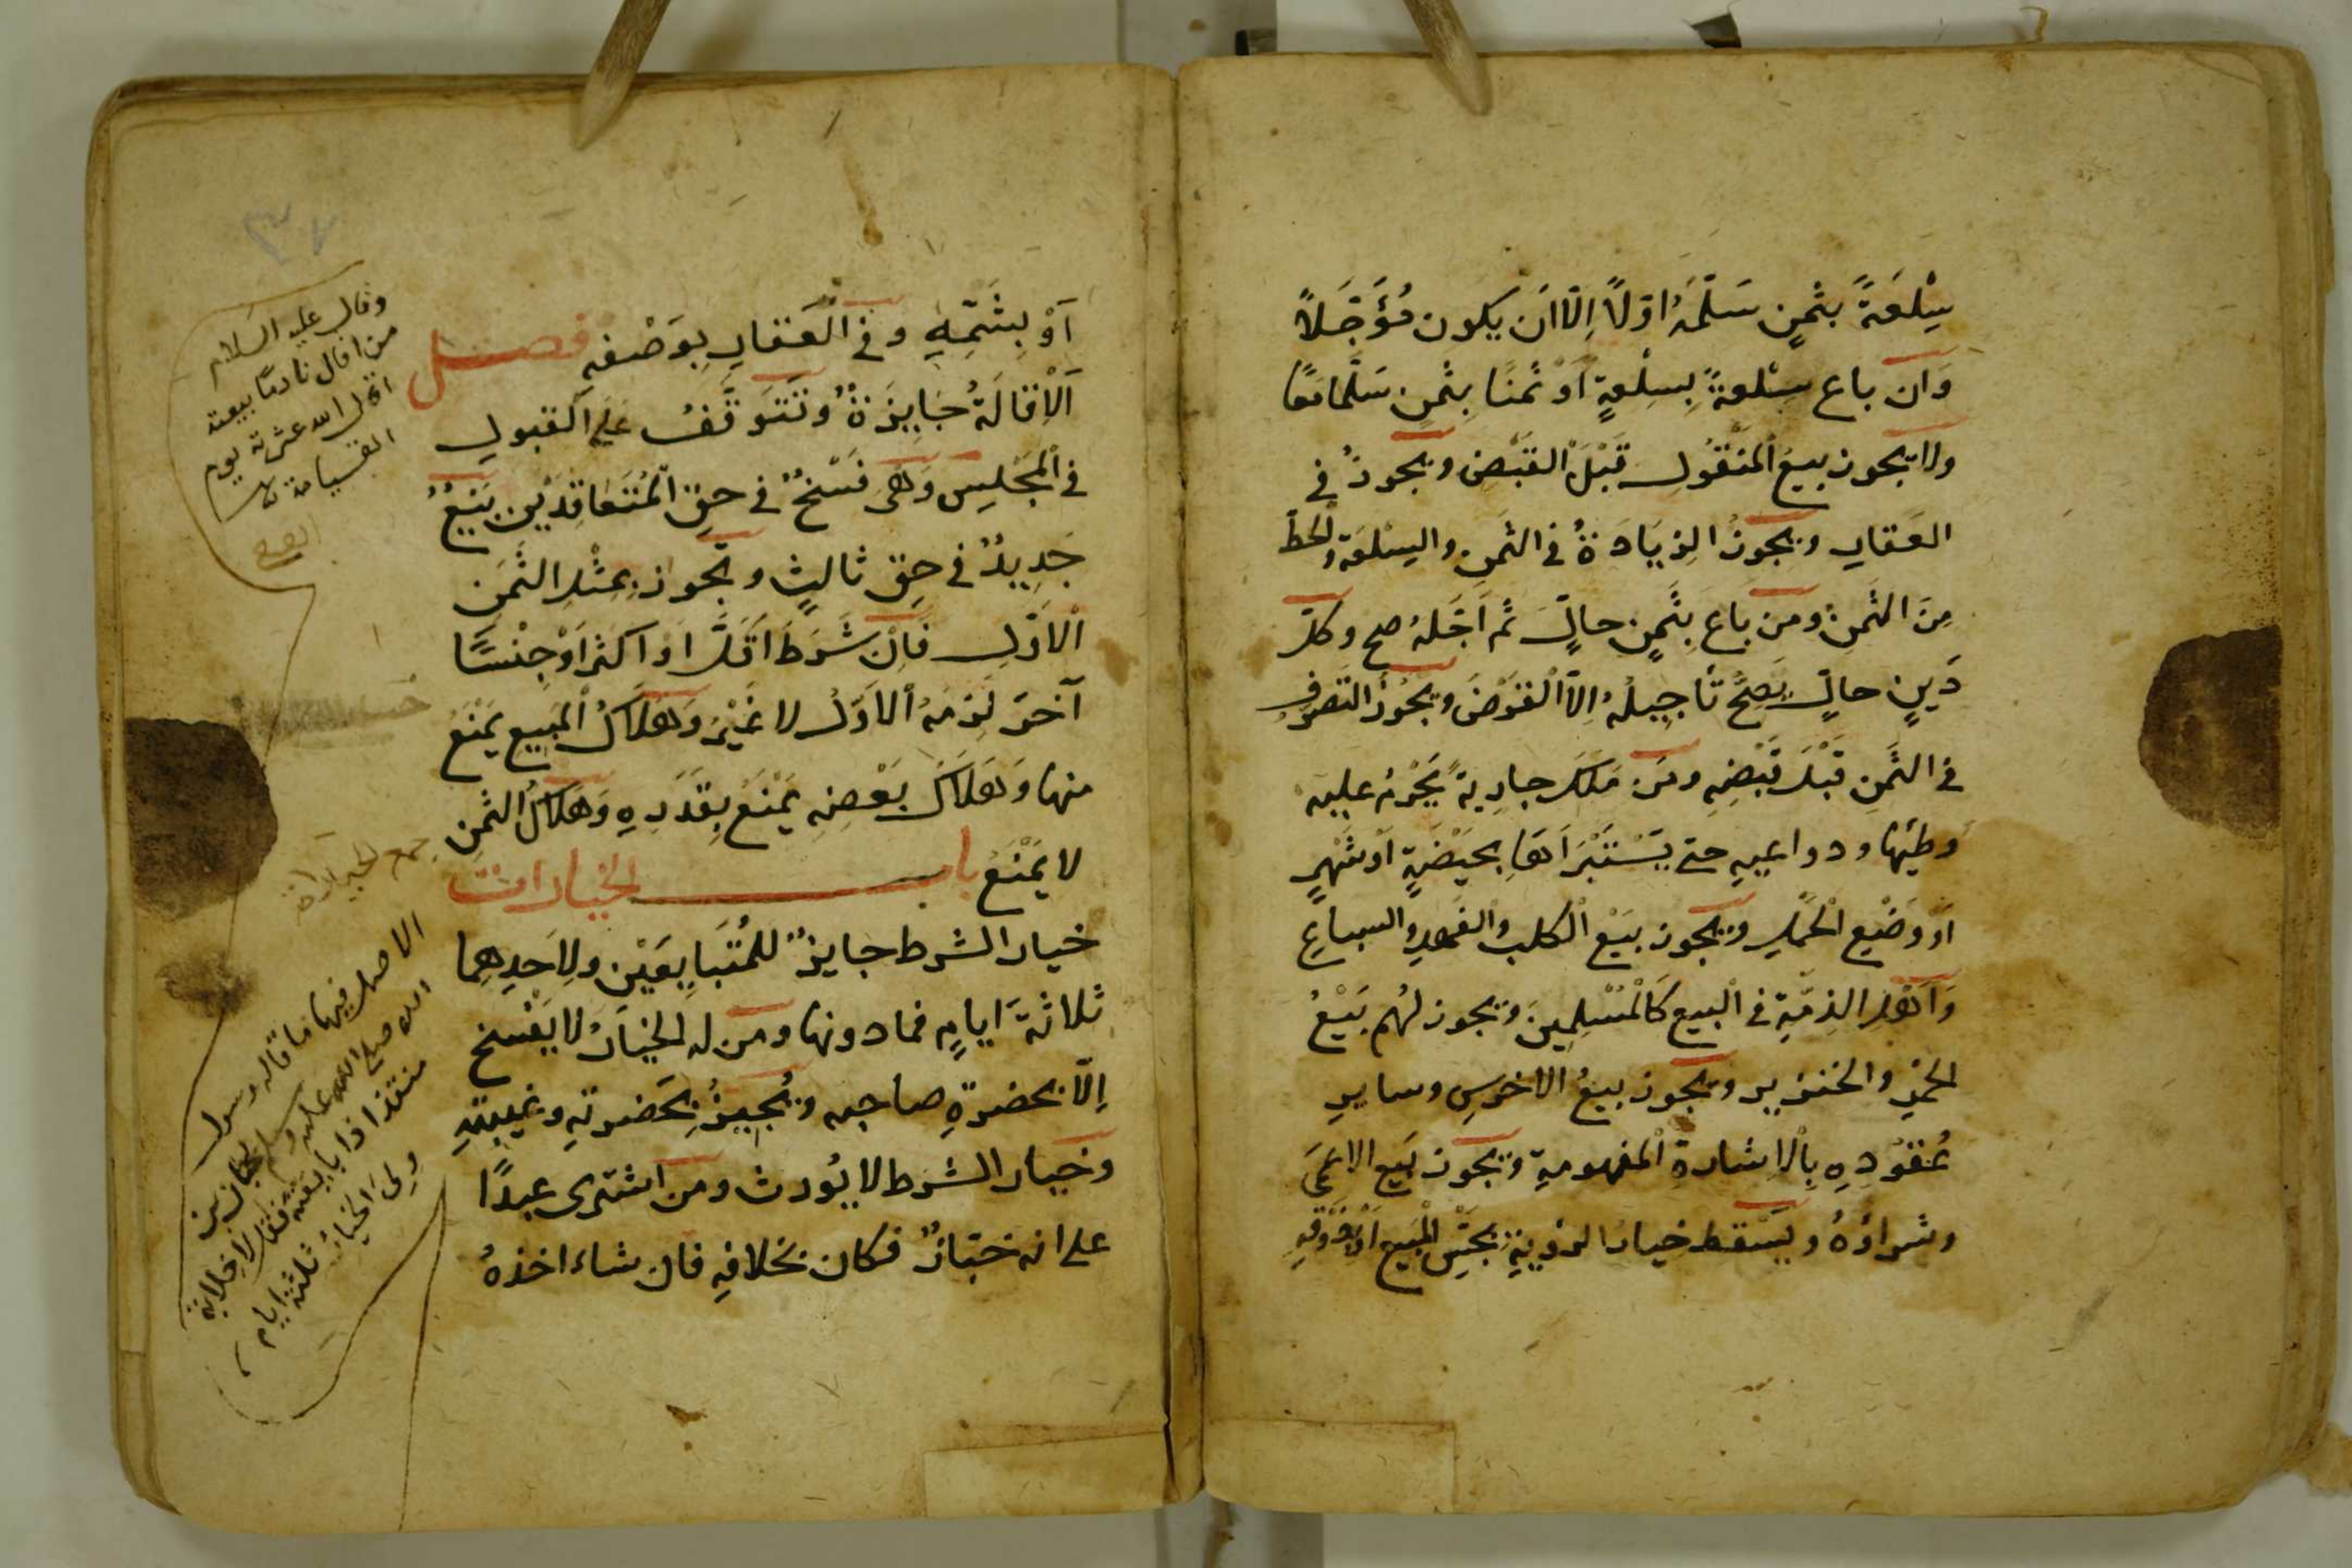 سِلْعَةً بثمنٍ سَلَّمَهُ اوّلًا اِلّا اَن يكون مُؤَجَّلًا
وَان باع سِلعةً بِسِلْعةٍ اَوْ ثمنًا بِثمنٍ سَلَّما مَعًا
ولا يجوز بيع المَنْقُولِ قَبْلَ القَبْضِ ويجوزُ في
العَقارِ ويجوزُ الزِيَادَةُ في الثمنِ والسِلعَةِ والحَطُّ
مِنَ الثَمنِ ومن باعَ بِثَمنٍ حالٍّ ثم اَجَّلَهُ صح وكلّ
دَينٍ حالٍّ يَصِحُّ تأجِيلُهُ اِلّا القَرْضَ ويجُوزُ التَصَرُّف
في الثَمنِ قَبْلَ قَبْضِهِ ومَن مَلَكَ جارِيةً يَحْرُمُ عليه
وَطيُها ودواعيهِ حتى يَسْتَبْرَأَهَا بِحَيْضَةٍ اَوْ شَهْرٍ
اَوْ وَضْعِ الحَمْلِ ويجوز بَيْع الكلبِ والفَهدِ والسباعِ
وَاَهْلُ الذِمَّةِ في البَيعِ كَالمُسْلِمِينَ ويجوز لهُم بَيْعُ
الخمْرِ والخنزيرِ ويجوز بيعُ الاخرسِ وسايرِ
عُقُوْدِهِ بِالاِشارةِ المَفهومةِ ويجوز بَيع الاعمَى
وشراؤهُ ويَسْقط خيارُ الرؤيةِ بِجَسِّ المَبيعِ اَوْ ذَوْقِهِ
اَوْ بِشَمِّهِ وفي العَقارِ بِوَصْفِهِ فصل
اَلْاِقَالَةُ جَايِزَةٌ وتَتَوَقَّفُ عَلى القبولِ
في المَجْلِسِ وَهيَ فَسْخٌ في حقِّ المُتَعَاقِدَيْنِ بَيْعٌ
جَدِيدٌ في حقِّ ثالثٍ وتجوز بمِثْلِ الثَّمَنِ
الْاَوّلِ فَاِنْ شَرَطَ اَقَلَّ اَوْ اكثر اَوْ جِنْسًا
آخَرَ لَزِمَهُ الاَوَّلُ لا غَيْرُ وَهَلاَكُ المَبِيعِ يَمْنَعُ
منها وَهَلاَكُ بَعْضِهِ يَمْنَعُ بِقَدَرِهِ وَهَلاَكُ الثَمنِ
لا يَمْنَعُ باب الخيارات
خيار الشرط جايزٌ للمُتَبَايِعَيْنِ ولِاَحَدِهِمَا
ثلاثةَ ايامٍ فما دونها ومن له الخيَارُ لا يَفْسخ
اِلّا بحضرةِ صاحبه ويُجِيزُ بِحَضرتهِ وغيبتهِ
وخيار الشرط لا يُورث ومن اشترى عبدًا
على انه خبّازٌ فكان بخلافهِ فان شاء اخذهُ
٣٧
وقال عليه السلام
من اقال نادمًا بيعته
اقال الله عثرته يوم
القيامة
الاصل فيها ما قاله رسول
الله صلى الله عليه وسلم لحبان بن
منقذ اذا بايعت فقل لا خِلابة
ولى الخيار ثلثة ايام